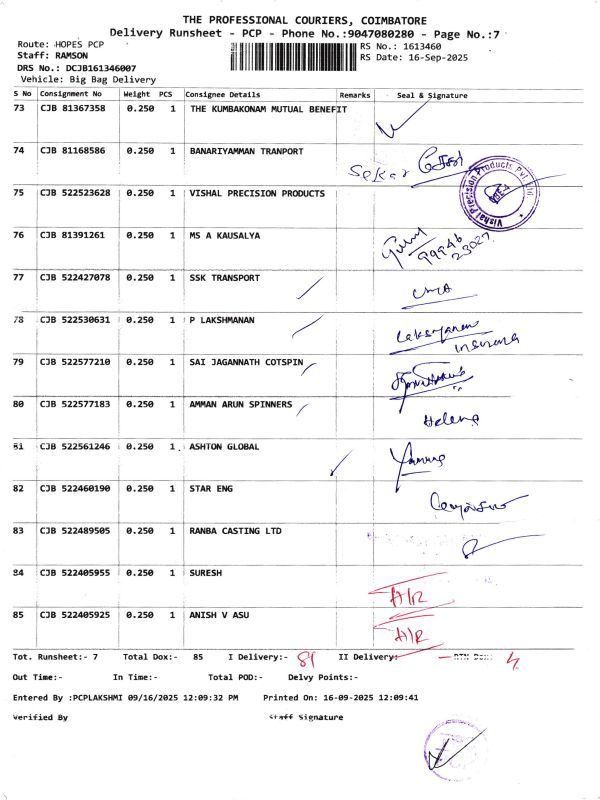 THE PROFESSIONAL COURIERS, COIMBATORE
Delivery Runsheet - PCP - Phone No.:9047080280 - Page No.:7
Route: HOPES PCP
RS No.: 1613460
Staff: RAMSON
RS Date: 16-Sep-2025
DRS No.: DCJB161346007
Vehicle: Big Bag Delivery
S No Consignment No Weight PCS Consignee Details Remarks Seal & Signature
73 CJB 81367358 0.250 1 THE KUMBAKONAM MUTUAL BENEFIT
74 CJB 81168586 0.250 1 BANARIYAMMAN TRANPORT
Sekar
75 CJB 522523628 0.250 1 VISHAL PRECISION PRODUCTS
Vishal Precision Products Pvt Ltd
76 CJB 81391261 0.250 1 MS A KAUSALYA
99946
23027
77 CJB 522427078 0.250 1 SSK TRANSPORT
78 CJB 522530631 0.250 1 P LAKSHMANAN
79 CJB 522577210 0.250 1 SAI JAGANNATH COTSPIN
80 CJB 522577183 0.250 1 AMMAN ARUN SPINNERS
Helena
81 CJB 522561246 0.250 1 ASHTON GLOBAL
82 CJB 522460190 0.250 1 STAR ENG
83 CJB 522489505 0.250 1 RANBA CASTING LTD
84 CJB 522405955 0.250 1 SURESH
A/R
85 CJB 522405925 0.250 1 ANISH V ASU
A/R
Tot. Runsheet:- 7 Total Dox:- 85 I Delivery:- 81 II Delivery:- RTN Dox: 4
Out Time:- In Time:- Total POD:- Delvy Points:-
Entered By :PCPLAKSHMI 09/16/2025 12:09:32 PM Printed On: 16-09-2025 12:09:41
Verified By Staff Signature